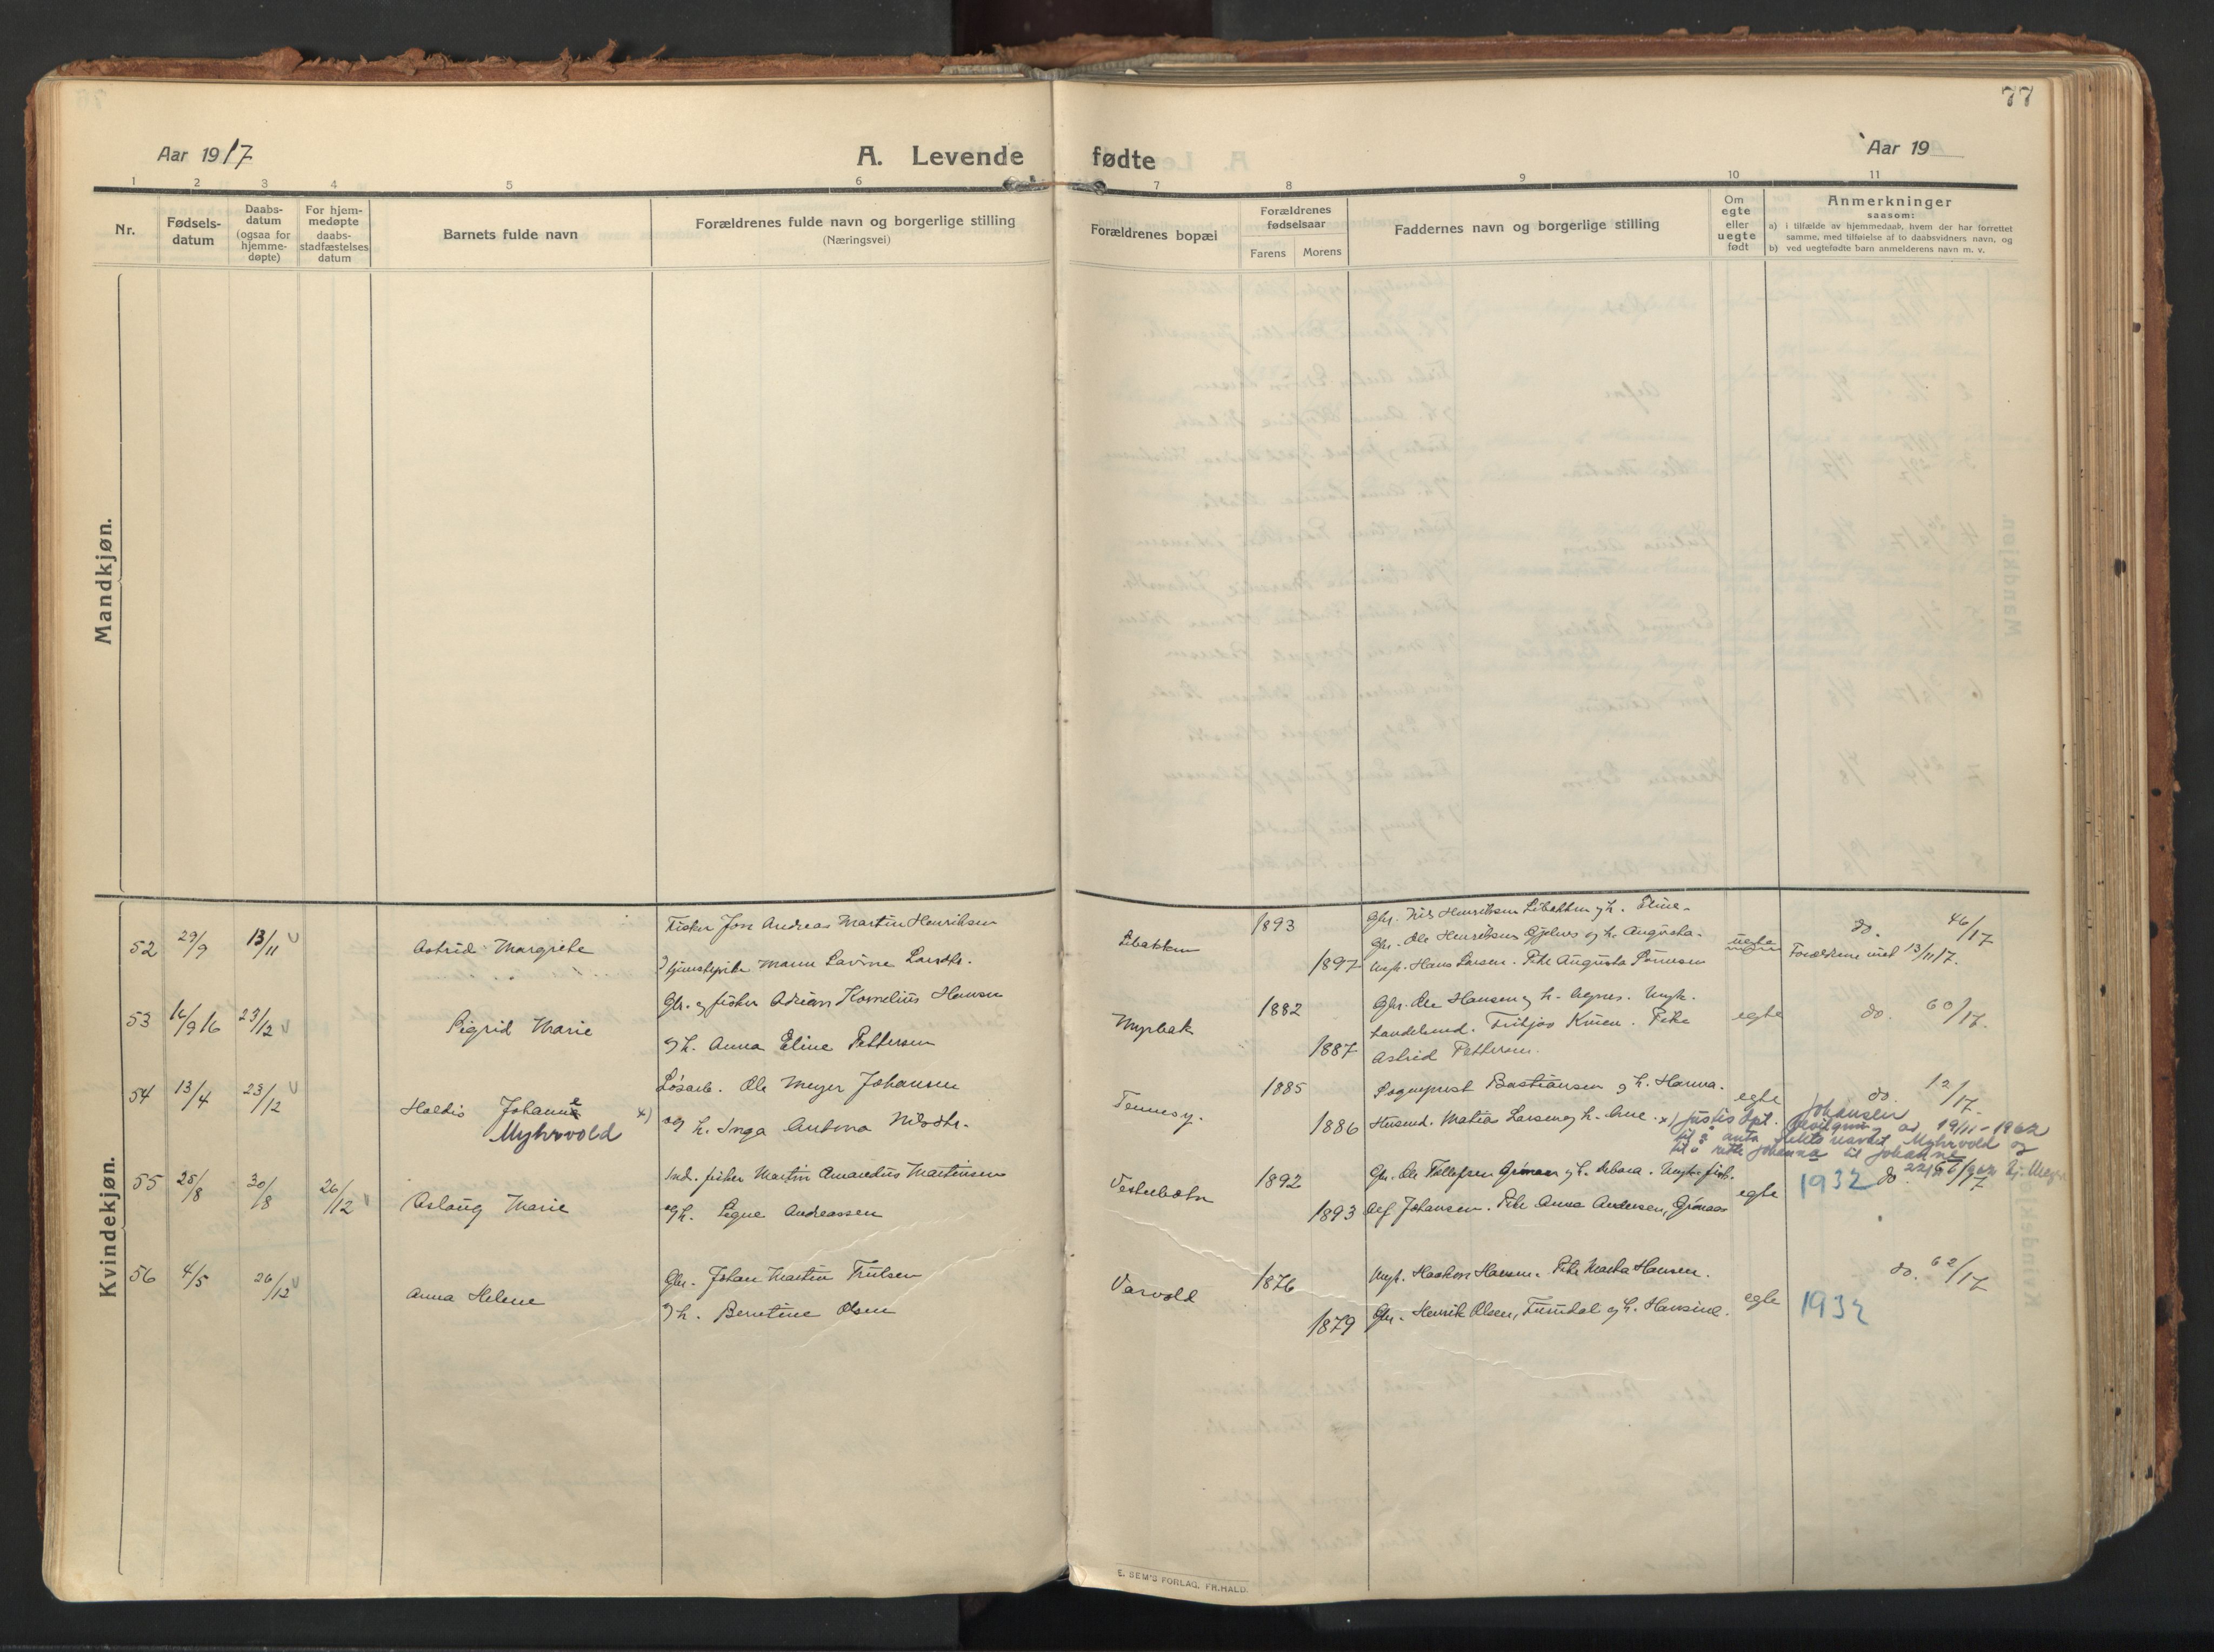 77
Aar 1917
A. Levende fødte
Aar 19
1 2 3 4 5 6 7 8 9 10 11
Nr.
Fødsels-
datum
Daabs-
datum
(ogsaa for
hjemme-
døpte)
For hjem-
medøpte
daabs-
stadfæstelses
datum
Barnets fulde navn
Forældrenes fulde navn og borgerlige stilling
(Næringsvei)
Forældrenes bopæl
Forældrenes
fødselsaar
Farens
Morens
Faddernes navn og borgerlige stilling
Om
egte
eller
uegte
født
Anmerkninger
saasom:
a) i tilfælde av hjemmedaab, hvem der har forrettet
samme, med tilføielse af to daabsvidners navn, og
b) ved uegtefødte barn anmelderens navn m. v.
Mandkjøn.
Kvindekjøn.
52 29/9 13/11
Astrid Margrethe
Fisker Jon Andreas Martin Henriksen
tjenestepike Lavine Larsdtr.
Libakken
1893
1897
Gbr. Nils Henriksen Libakken og h. Eline.
Gbr. Ole Henriksen og h. Augusta.
Ungk. Hans Larsen. Pike Augusta
uegte
do. 46/17
Forældrene viet 13/11 17.
53 16/9 16 23/12
Sigrid Marie
Gbr. og fisker Adrian Kornelius Hansen
og h. Anna Eline Pettersen
Myrbak
1882
1887
Gbr. Ole Hansen og h. Agnes. Ungk.
Fritjov Knien. Pike
Astrid Pettersen.
egte
do. 60/17.
54 13/4 23/12
Haldis Johanne
Myhrvold
x)
Løsarb. Ole Meyer Johansen
og h. Inga Antona Nilsdtr.
Tennes ø.
1885
1886
Sogneprest Bastiansen og h. Hanna.
Husmd. Matias Larsen og h. Ane.
egte
do. 12/17.
x) Justis dpt. bevilgning av 19/11-1962
Johansen
til å anta slektsnavnet Myhrvold og
til å rette Johanna til Johanne
55 25/8 30/8 26/12
Aslaug Marie
Ind. fisker Martin Amandus Martinsen
og h. Signe Andreassen
Vesterbotn
1892
1893
Gbr. Ole Tollefsen Grønaas og h. Ungk. fisk.
Alf Johansen. Pike Anna Andersen, Grønaas
egte
1932
do.
56 4/5 26/12
Anna Helene
Gbr. Johan Martin Trulsen
og h. Berntine Olsen
Varvold
1876
1879
Ungk. Haakon Hansen. Pike Marta Hansen.
Gbr. Henrik Olsen, og h. Hansine.
egte
do. 62/17
1932
E. SEM'S FORLAG, FR.HALD.